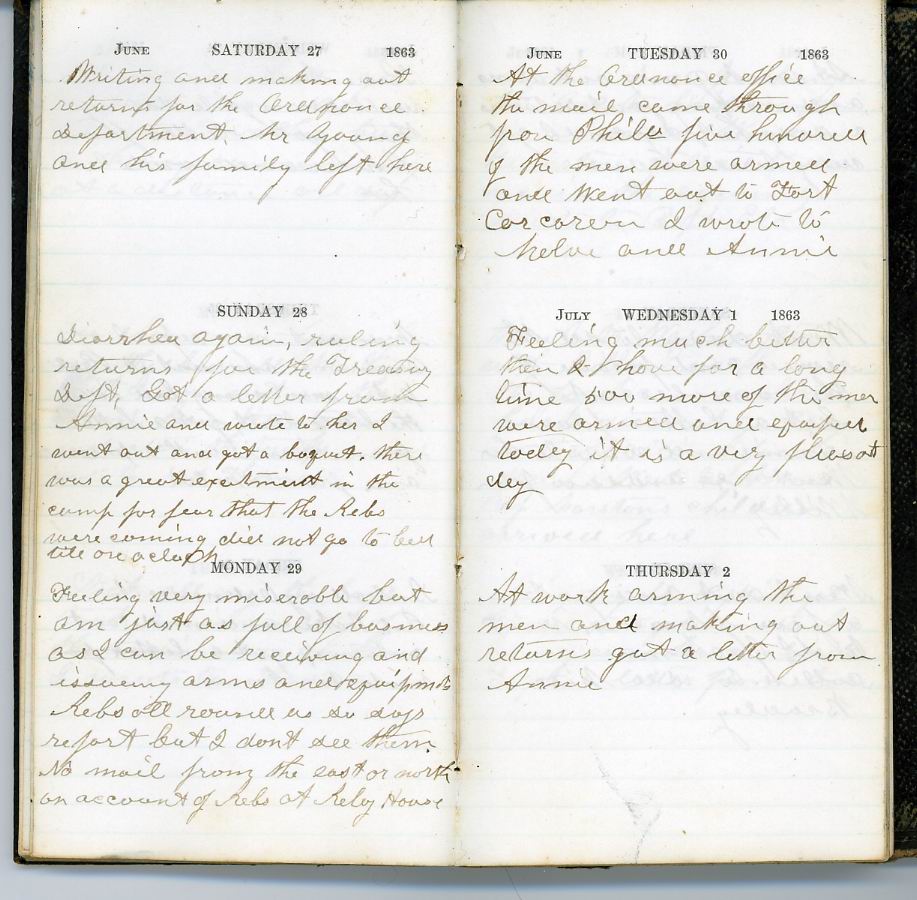 JUNE SATURDAY 27 1863
Writing and making out
returns for the Ordnonce
Department Mr Yound
and his family left here
SUNDAY 28
Diorrhea again, ruling
returns for the Treasury
Dept, Got a letter from
Annie and wrote to her I
went out and got a boquet. there
was a great excitment in the
camp for fear that the Rebs
were coming did not go to bed
till one oclock
MONDAY 29
Feeling very miserable but
am just as full of business
as I can be receiving and
issueing arms and equipmts
Rebs all round us so says
report but I dont see them
No mail from the east or north
on account of Rebs at Rely House
JUNE TUESDAY 30 1863
At the Ordnonce office
the mail came through
from Phila five hundred
of the men were armed
and went out to Fort
Corcoren I wrote to
and Annie
JULY WEDNESDAY 1 1863
Feeling much better
then I have for a long
time 500 more of the men
were armed and equiped
today it is a very plesant
dey
THURSDAY 2
At work arming the
men and making out
returns got a letter from
Annie